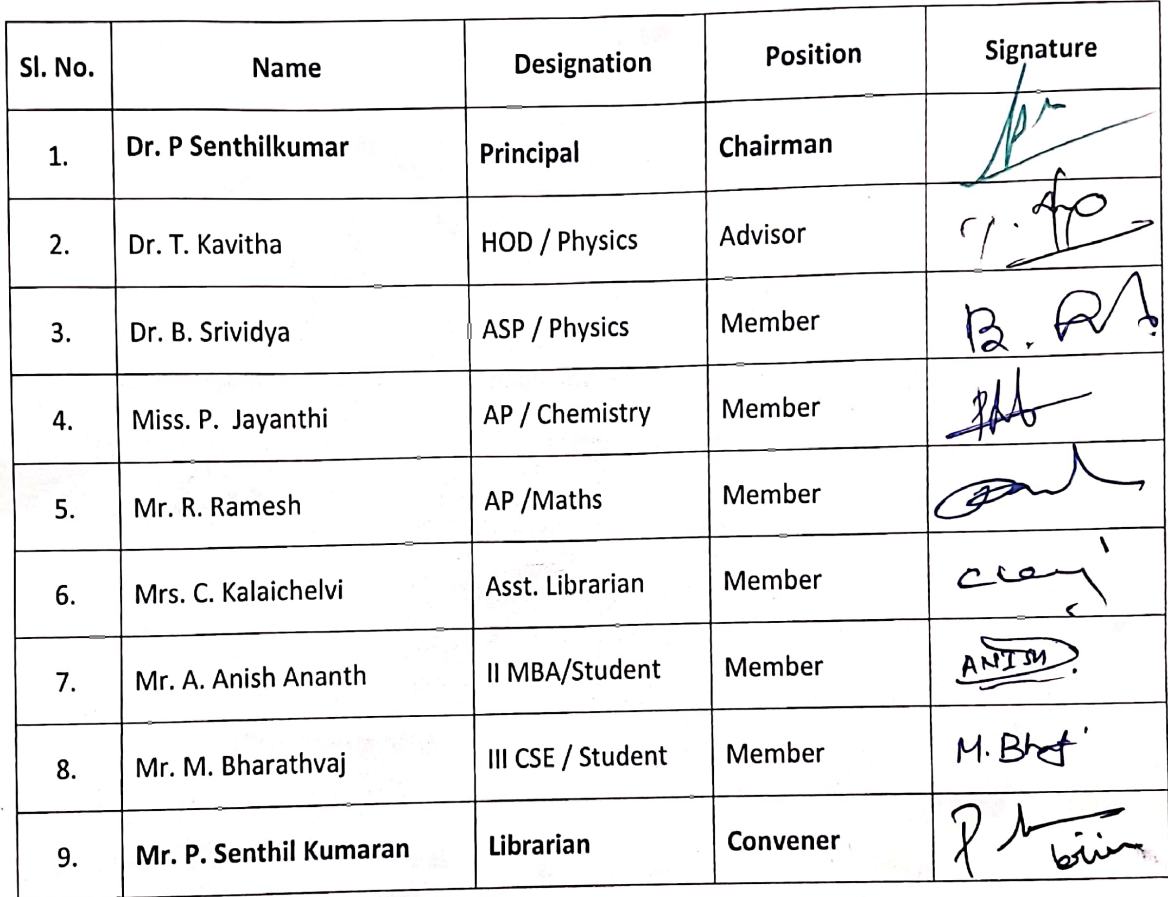 Sl. No. Name Designation Position Signature
1. Dr. P Senthilkumar Principal Chairman
2. Dr. T. Kavitha HOD / Physics Advisor
3. Dr. B. Srividya ASP / Physics Member B.
4. Miss. P. Jayanthi AP / Chemistry Member
5. Mr. R. Ramesh AP /Maths Member
6. Mrs. C. Kalaichelvi Asst. Librarian Member
7. Mr. A. Anish Ananth II MBA/Student Member ANISH
8. Mr. M. Bharathvaj III CSE / Student Member M.
9. Mr. P. Senthil Kumaran Librarian Convener P